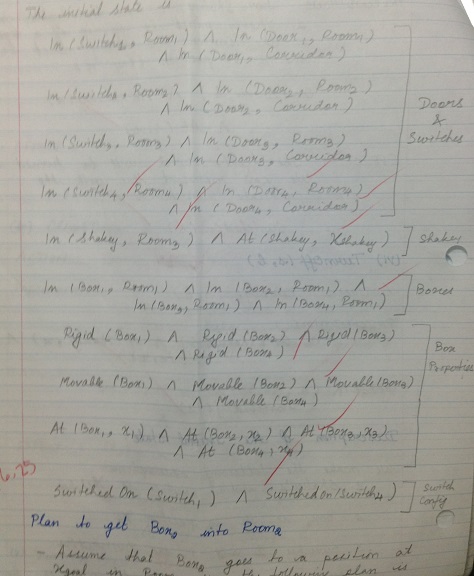 The initial state is
In (Switch1, Room1) ∧ In (Door1, Room1)
∧ In (Door1, Corridor)
In (Switch2, Room2) ∧ In (Door2, Room2)
∧ In (Door2, Corridor)
In (Switch3, Room3) ∧ In (Door3, Room3)
∧ In (Door3, Corridor)
In (Switch4, Room4) ∧ In (Door4, Room4)
∧ In (Door4, Corridor)
Doors
&
Switches
In (Shakey, Room3) ∧ At (Shakey, Xshakey)
Shakey
In (Box1, Room1) ∧ In (Box2, Room1) ∧
In (Box3, Room1) ∧ In (Box4, Room1)
Boxes
Rigid (Box1) ∧ Rigid (Box2) ∧ Rigid (Box3)
∧ Rigid (Box4)
Movable (Box1) ∧ Movable (Box2) ∧ Movable (Box3)
∧ Movable (Box4)
At (Box1, x1) ∧ At (Box2, x2) ∧ At (Box3, x3)
∧ At (Box4, x4)
Box
Properties
6.25
Switched On (Switch1) ∧ Switched On (Switch4)
Switch
Config
Plan to get Box2 into Room2
- Assume that Box2 goes to a position at
Xgoal in the following plan is